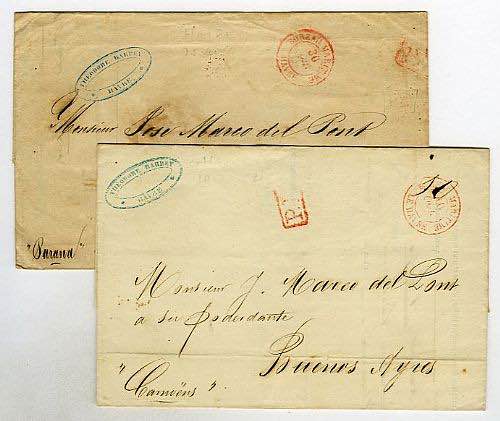 THEODORE BARBEY
HAVRE
30
Monsieur José Marco del Pont
"Parana"
THEODORE BARBEY
HAVRE
P.P.
Monsieur J. Marco del Pont
a su poderdante
Buenos Ayres
"Camoëns"